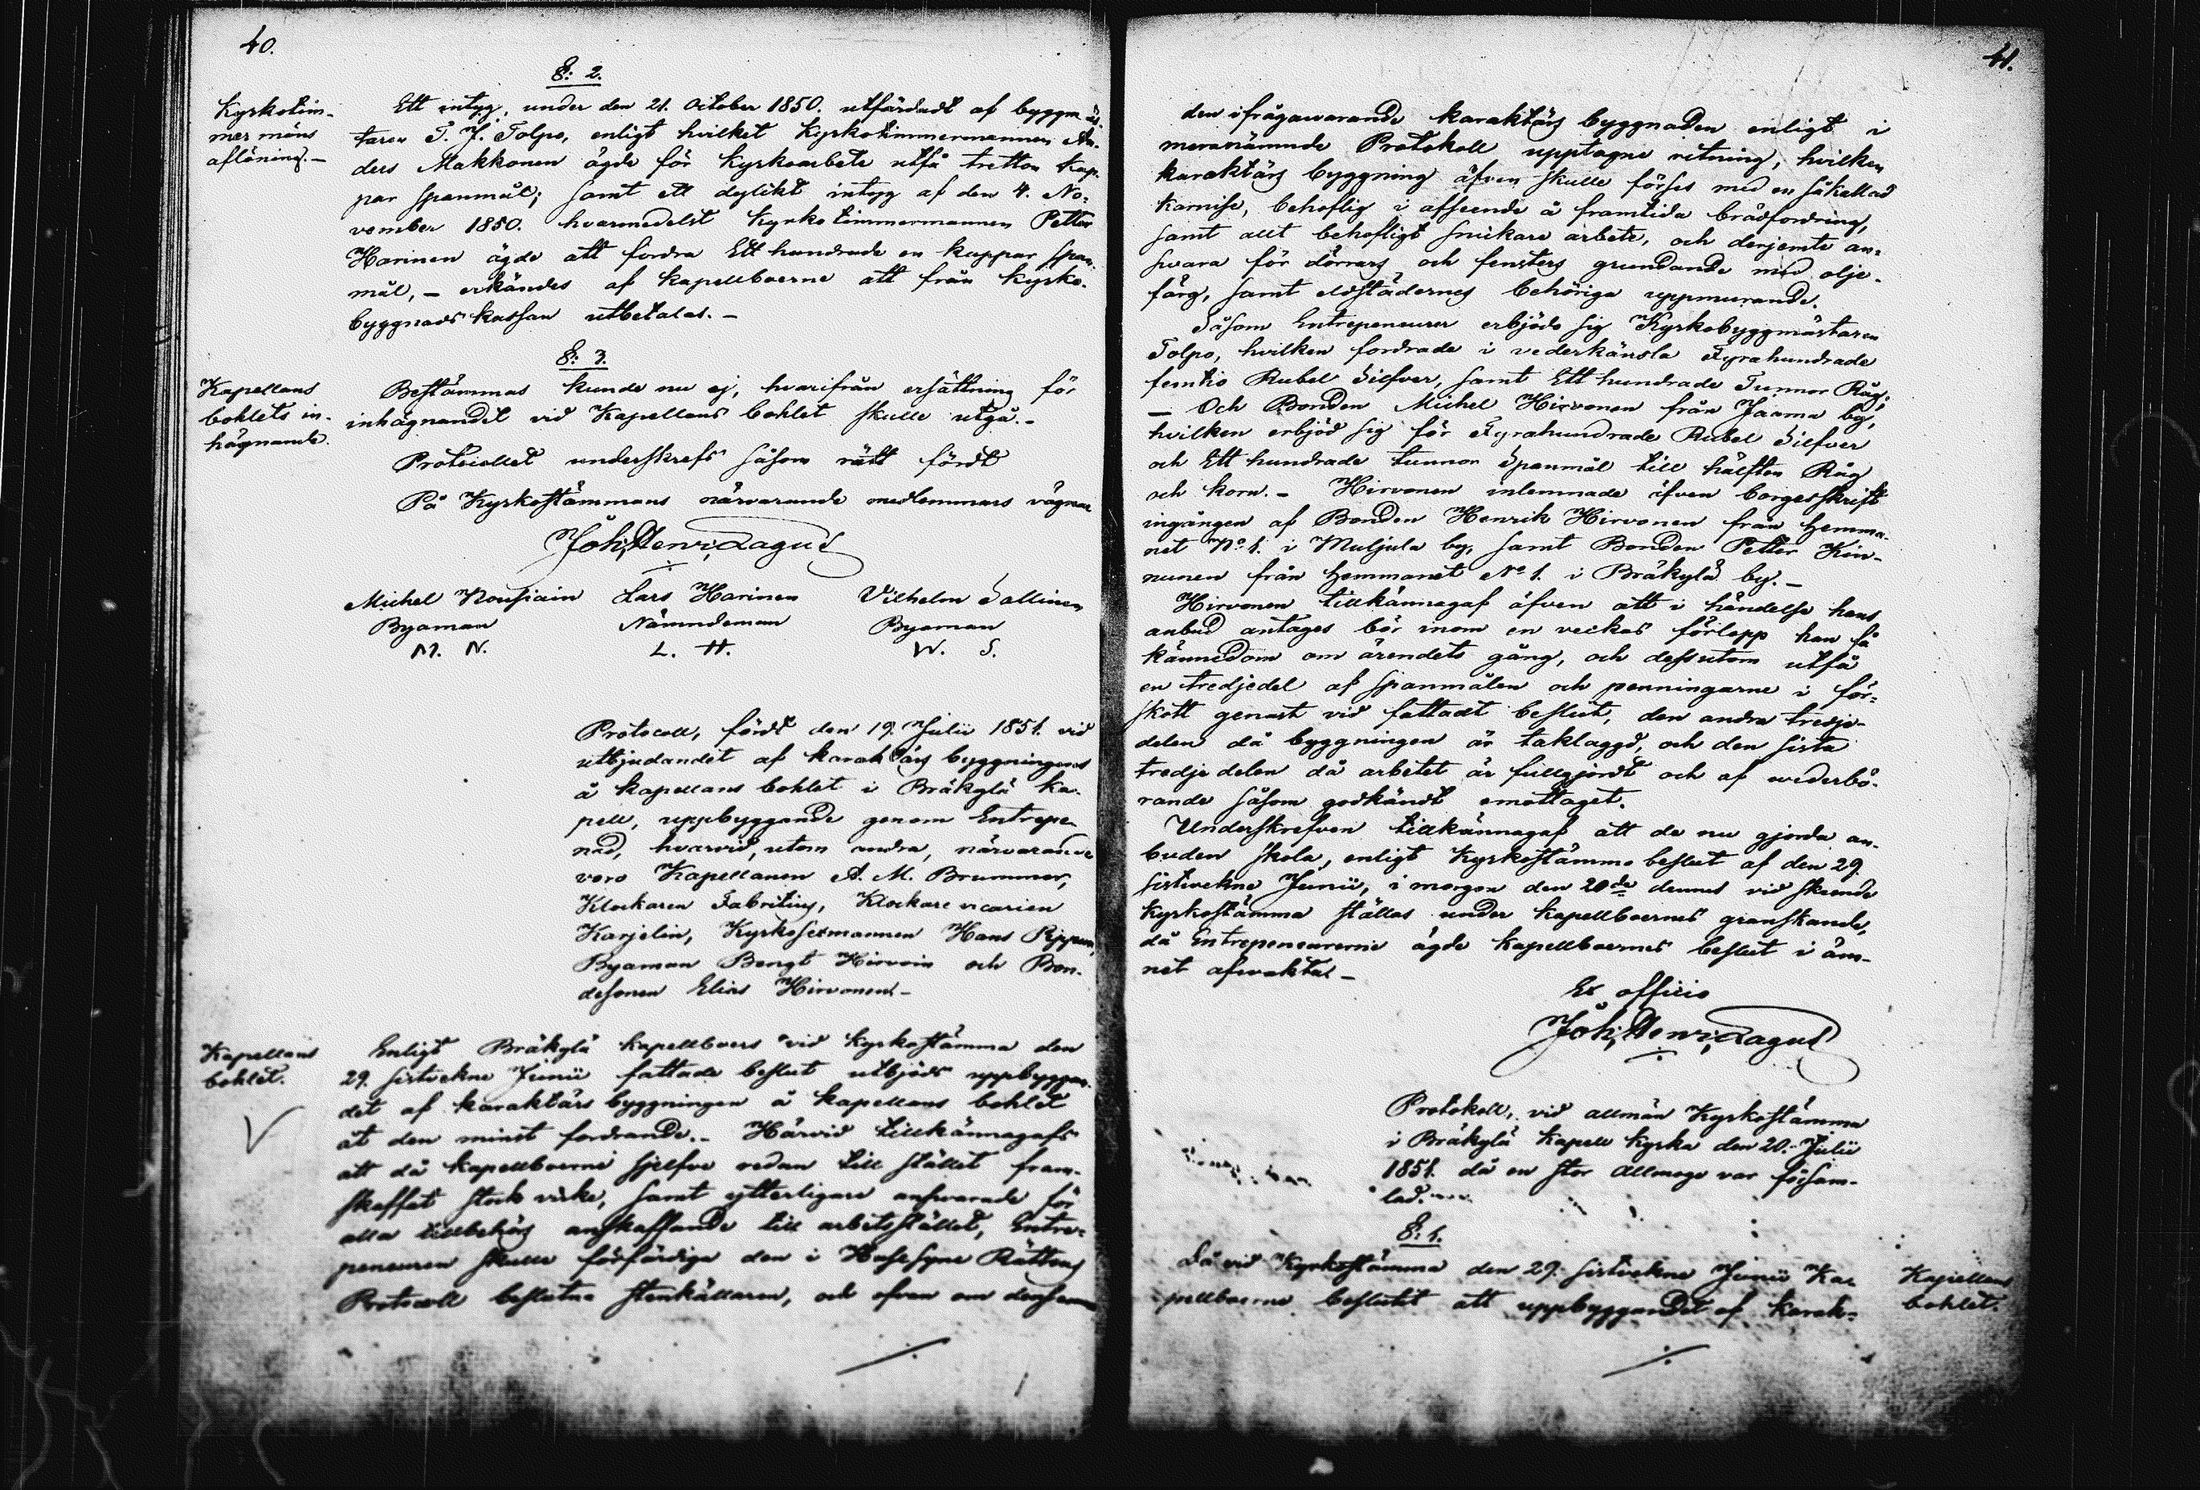 40.
§: 2.
Kyrkotim-
mer mäns
aflöning.-
Ett intyg, under den 21. October 1850. utfärdadt af byggmäs-
taren T. J. Tolpo, enligt hvilket Kyrkotimmermannen An-
ders Makkonen ägde för Kyrkoarbete utfå tretton kap-
par spanmål; samt ett dylikt intyg af den 4. No-
vember 1850. hvarmedelst Kyrko timmermannen Petter
Harinen ägde att fordra Ett hundrade en kappar span-
mål, - erkändes af kapellboerne att från kyrko-
byggnads kassan utbetalas. -
§: 3.
Kapellans
bohlets in-
hägnande.
Bestämmas kunde nu ej, hvarifrån ersättning för
inhägnandet vid Kapellans bohlet skulle utgå. -
Protocollet underskrefs såsom rätt fördt
På Kyrkostämmans närvarande medlemmars vägnar
Joh. Henr. Lagus
Michel Nousiain Lars Harinen Vilhelm Sallinen
Byaman Nämndeman Byaman
M. N. L. H. W. S.
Protocoll, fördt den 19. Julii 1851. vid
utbjudandet af karaktärs byggningens
å kapellans bohlet i Bräkylä ka-
pell, uppbyggande genom Entrepe-
nad, hvarvid, utom andra, närvarande
voro Kapellanen A. M. Brummer,
Klockaren Fabritius, Klockare vicarien
Karjelin, Kyrkosexmannen Hans Pippon,
Byaman Bengt Hirvoin och Bon-
desonen Elias Hirvonen. -
Kapellans
bohlet.
Enligt Bräkylä kapellboers vid Kyrkostämma den
29. sistvekne Junii fattade beslut utbjöds uppbyggan-
det af karaktärs byggningen å kapellans bohlet
åt den minst fordrande. - Härvid tillkännagafs
att då kapellboerne sjelfve redan till stället fram-
skaffat stock virke, samt ytterligare ansvarade för
alla tillbehörs anskaffande till arbetsstället, Entre-
peneuren skulle förfärdiga den i Husesyns Rättens
Protocoll beslutna stenkällaren, och ofvan om densamma
41.
den ifrågavarande karaktärs byggnaden enligt i
meranämnde Protokoll upptagne ritning, hvilken
karaktärs byggning äfven skulle förses med en såkallad
karnise, behöflig i afseende å framtida brädfordring,
samt allt behöfligt snickare arbete, och derjemte an-
svara för dörrars och fensters grundande med olje-
färg, samt eldstädernes behöriga uppmurande.
Såsom Entrepeneurer erbjödo sig Kyrkobyggmästaren
Tolpo, hvilken fordrade i vederkänsla Fyrahundrade
femtio Rubel Silfver, samt Ett hundrade Tunnor Råg;
- Och Bonden Michel Hirvonen från Jaama by,
hvilken erbjöd sig för Fyrahundrade Rubel Silfver
och Ett hundrade tunnor Spanmål till hälften Råg
och korn. - Hirvonen inlemnade äfven borgesskrift
ingången af Bonden Henrik Hirvonen från hemma-
net No 1. i Muljula by, samt Bonden Petter Kin-
nunen från hemmanet No 1. i Bräkylä by. -
Hirvonen tillkännagaf äfven att i händelse hans
anbud antages bör inom en veckas förlopp han få
kännedom om ärendets gång, och dessutom utfå
en tredjedel af spanmålen och penningarne i för-
skott genast vid fattadt beslut, den andra tredje-
delen då byggningen är taklaggd, och den sista
tredje delen då arbetet är fullgjordt och af wederbö-
rande såsom godkändt emottaget.
Underskrefven tillkännagaf att de nu gjorda an-
buden skola, enligt Kyrkostämmo beslut af den 29.
sistvekne Junii, i morgon den 20de dennes vid skeende
kyrkostämma ställas under kapellboernes granskande,
då Entrepeneurerne ägde kapellboernes beslut i äm-
net afvakta. -
Ex officio
Joh. Henr. Lagus
Protokoll, vid allmän Kyrkostämma
i Bräkylä Kapell kyrka den 20. Julii
1851. då en stor Allmoge var försam-
lad.
§: 1.
Då vid Kyrkostämma den 29. sistvekne Junii Ka-
pellboerne beslutit att uppbyggandet af karak-
Kapellans
bohlet.